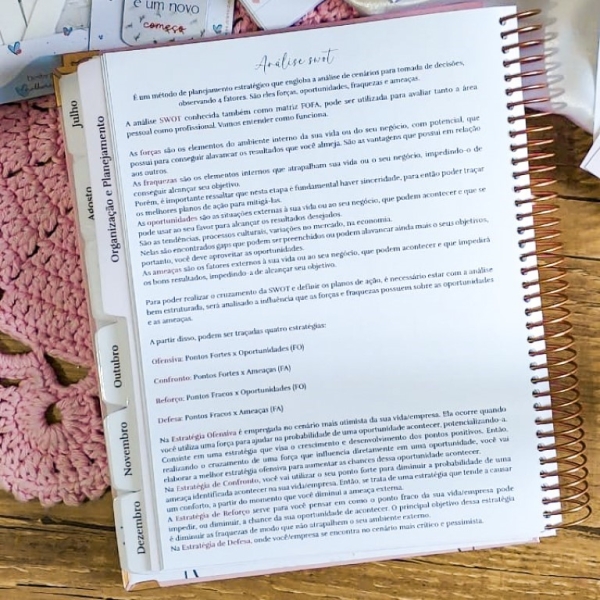 é um novo
começo
Análise swot
É um método de planejamento estratégico que engloba a análise de cenários para tomada de decisões,
observando 4 fatores. São eles forças, oportunidades, fraquezas e ameaças.
A análise SWOT conhecida também como matriz FOFA, pode ser utilizada para avaliar tanto a área
pessoal como profissional. Vamos entender como funciona.
As forças são os elementos do ambiente interno da sua vida ou do seu negócio, com potencial, que
possui para conseguir alavancar os resultados que você almeja. São as vantagens que possui em relação
aos outros.
As fraquezas são os elementos internos que atrapalham sua vida ou o seu negócio, impedindo-o de
conseguir alcançar seu objetivo.
Porém, é importante ressaltar que nesta etapa é fundamental haver sinceridade, para então poder traçar
os melhores planos de ação para mitigá-las.
As oportunidades são as situações externas à sua vida ou ao seu negócio, que podem acontecer e que se
pode usar ao seu favor para alcançar os resultados desejados.
São as tendências, processos culturais, variações no mercado, na economia.
Nelas são encontrados gaps que podem ser preenchidos ou podem alavancar ainda mais o seus objetivos,
portanto, você deve aproveitar as oportunidades.
As ameaças são os fatores externos à sua vida ou ao seu negócio, que podem acontecer e que impedirá
os bons resultados, impedindo-a de alcançar seu objetivo.
Para poder realizar o cruzamento da SWOT e definir os planos de ação, é necessário estar com a análise
bem estruturada, será analisado a influência que as forças e fraquezas possuem sobre as oportunidades
e as ameaças.
A partir disso, podem ser traçadas quatro estratégias:
Ofensiva: Pontos Fortes x Oportunidades (FO)
Confronto: Pontos Fortes x Ameaças (FA)
Reforço: Pontos Fracos x Oportunidades (FO)
Defesa: Pontos Fracos x Ameaças (FA)
Na Estratégia Ofensiva é empregada no cenário mais otimista da sua vida/empresa. Ela ocorre quando
você utiliza uma força para ajudar na probabilidade de uma oportunidade acontecer, potencializando-a.
Consiste em uma estratégia que visa o crescimento e desenvolvimento dos pontos positivos. Então,
realizando o cruzamento de uma força que influencia diretamente em uma oportunidade, você vai
elaborar a melhor estratégia ofensiva para aumentar as chances dessa oportunidade acontecer.
Na Estratégia de Confronto, você vai utilizar o seu ponto forte para diminuir a probabilidade de uma
ameaça identificada acontecer na sua vida/empresa. Então, se trata de uma estratégia que tende a causar
um conforto, a partir do momento que você diminui a ameaça externa.
A Estratégia de Reforço serve para você pensar em como o ponto fraco da sua vida/empresa pode
impedir, ou diminuir, a chance da sua oportunidade de acontecer. O principal objetivo dessa estratégia
é diminuir as fraquezas de modo que não atrapalhem o seu ambiente externo.
Na Estratégia de Defesa, onde você/empresa se encontra no cenário mais crítico e pessimista.
Julho
Agosto
Organização e Planejamento
Outubro
Novembro
Dezembro